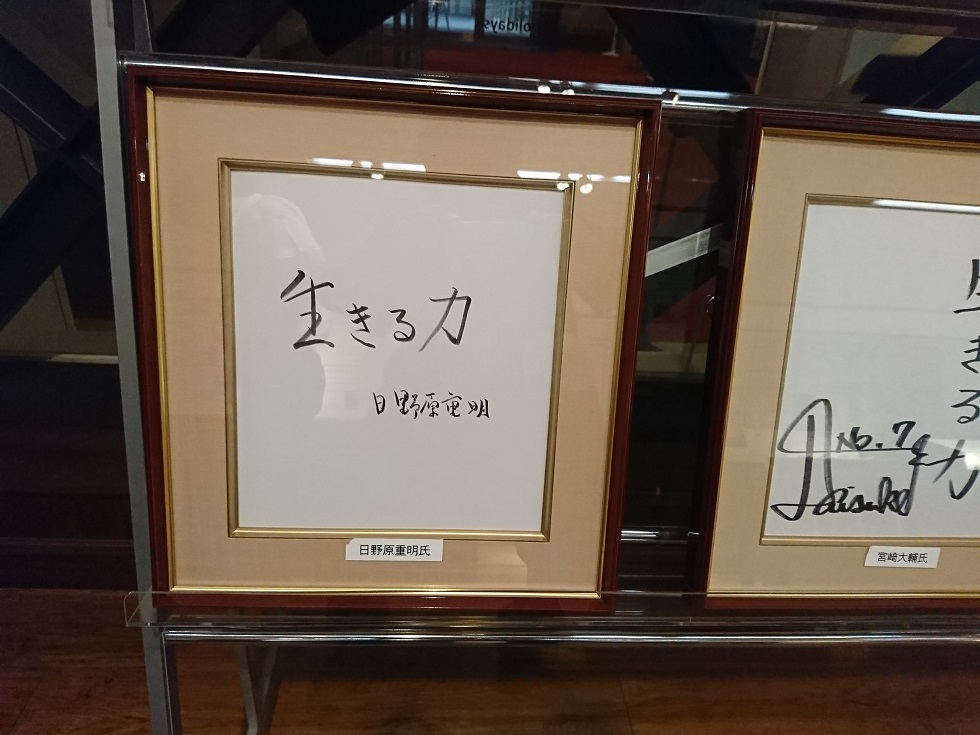 生きる力
日野原重明
日野原重明氏
生きる力
No.7
Daisuke
宮﨑大輔氏
olidays